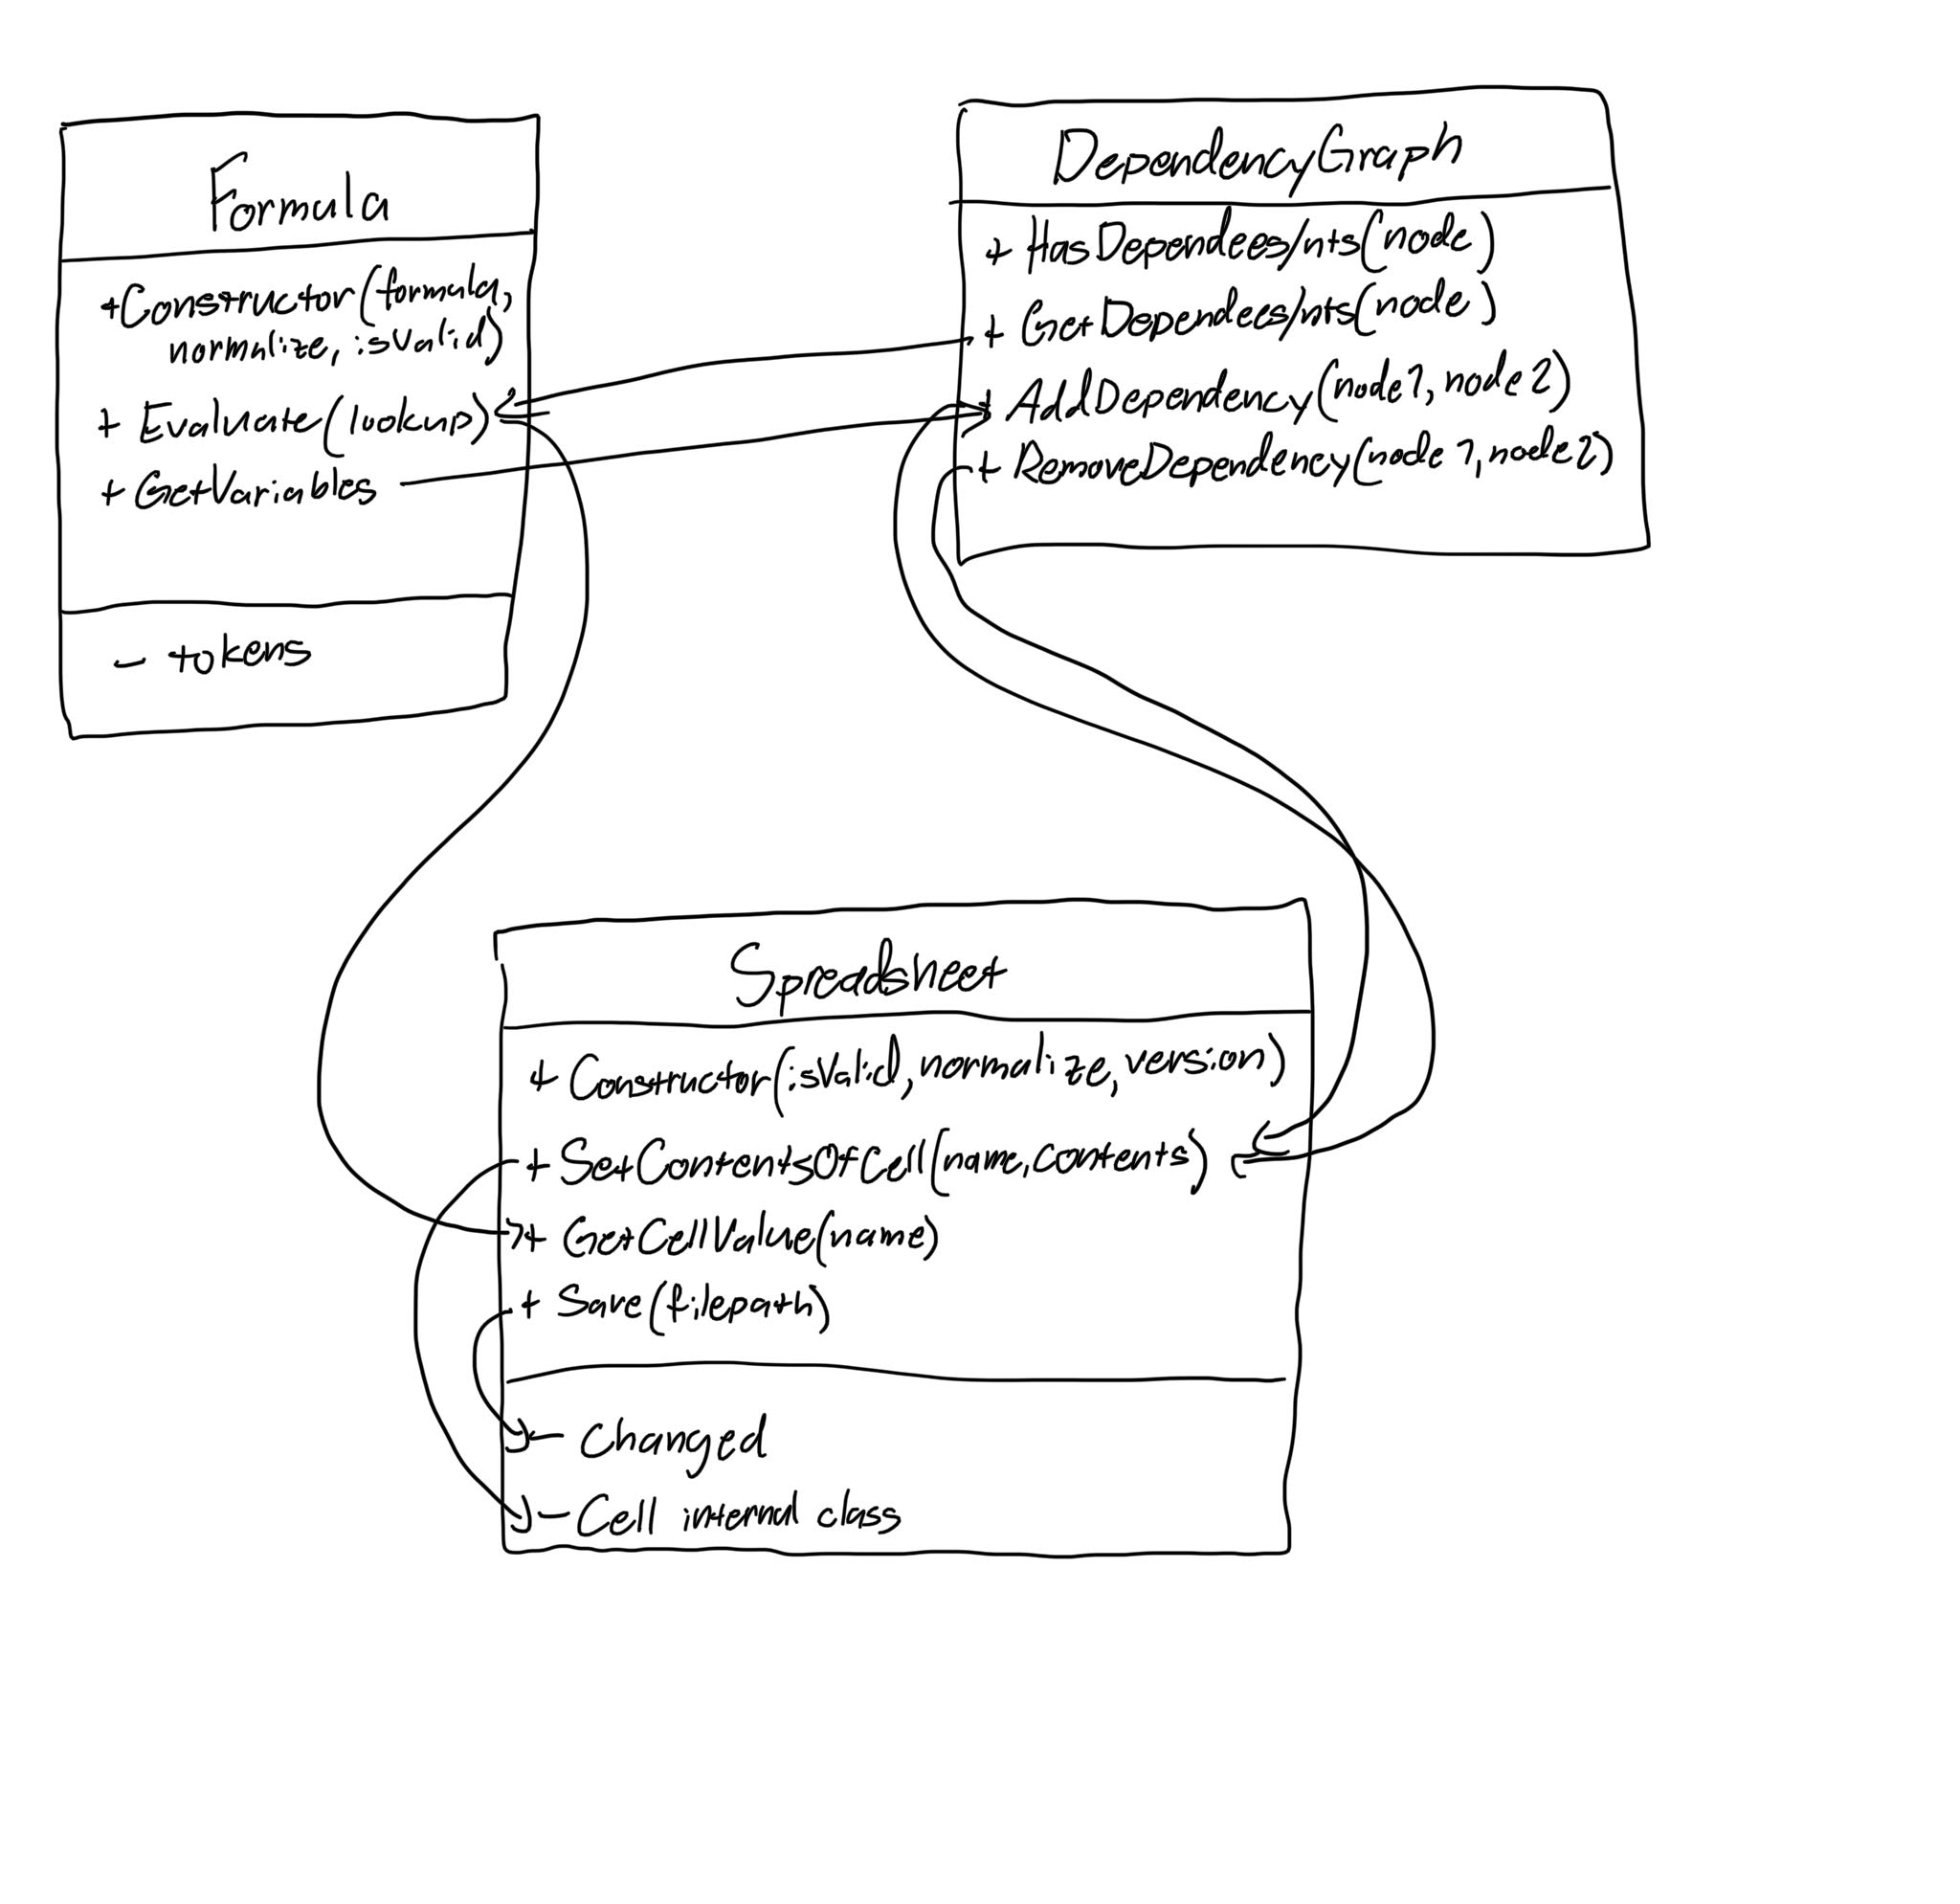 Formula
+ Constructor(formula,
normalize, isValid)
+ Evaluate(lookup)
+ GetVariables
- tokens
DependencyGraph
+ HasDependees/nts(node)
+ GetDependees/nts(node)
+ AddDependency(node1, node2)
+ RemoveDependency(node1, node2)
Spreadsheet
+ Constructor(isValid, normalize, version)
+ SetContentsOfCell(name, contents)
+ GetCellValue(name)
+ Save(filepath)
- Changed
- Cell internal class